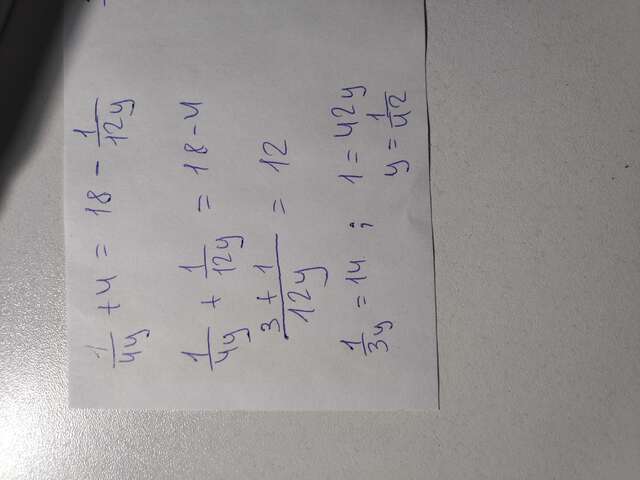 1/4y + 4 = 18 - 1/12y
1/4y + 1/12y = 18 - 4
3 + 1/12y = 12
1/3y = 14 ; 1 = 42y
y = 1/42